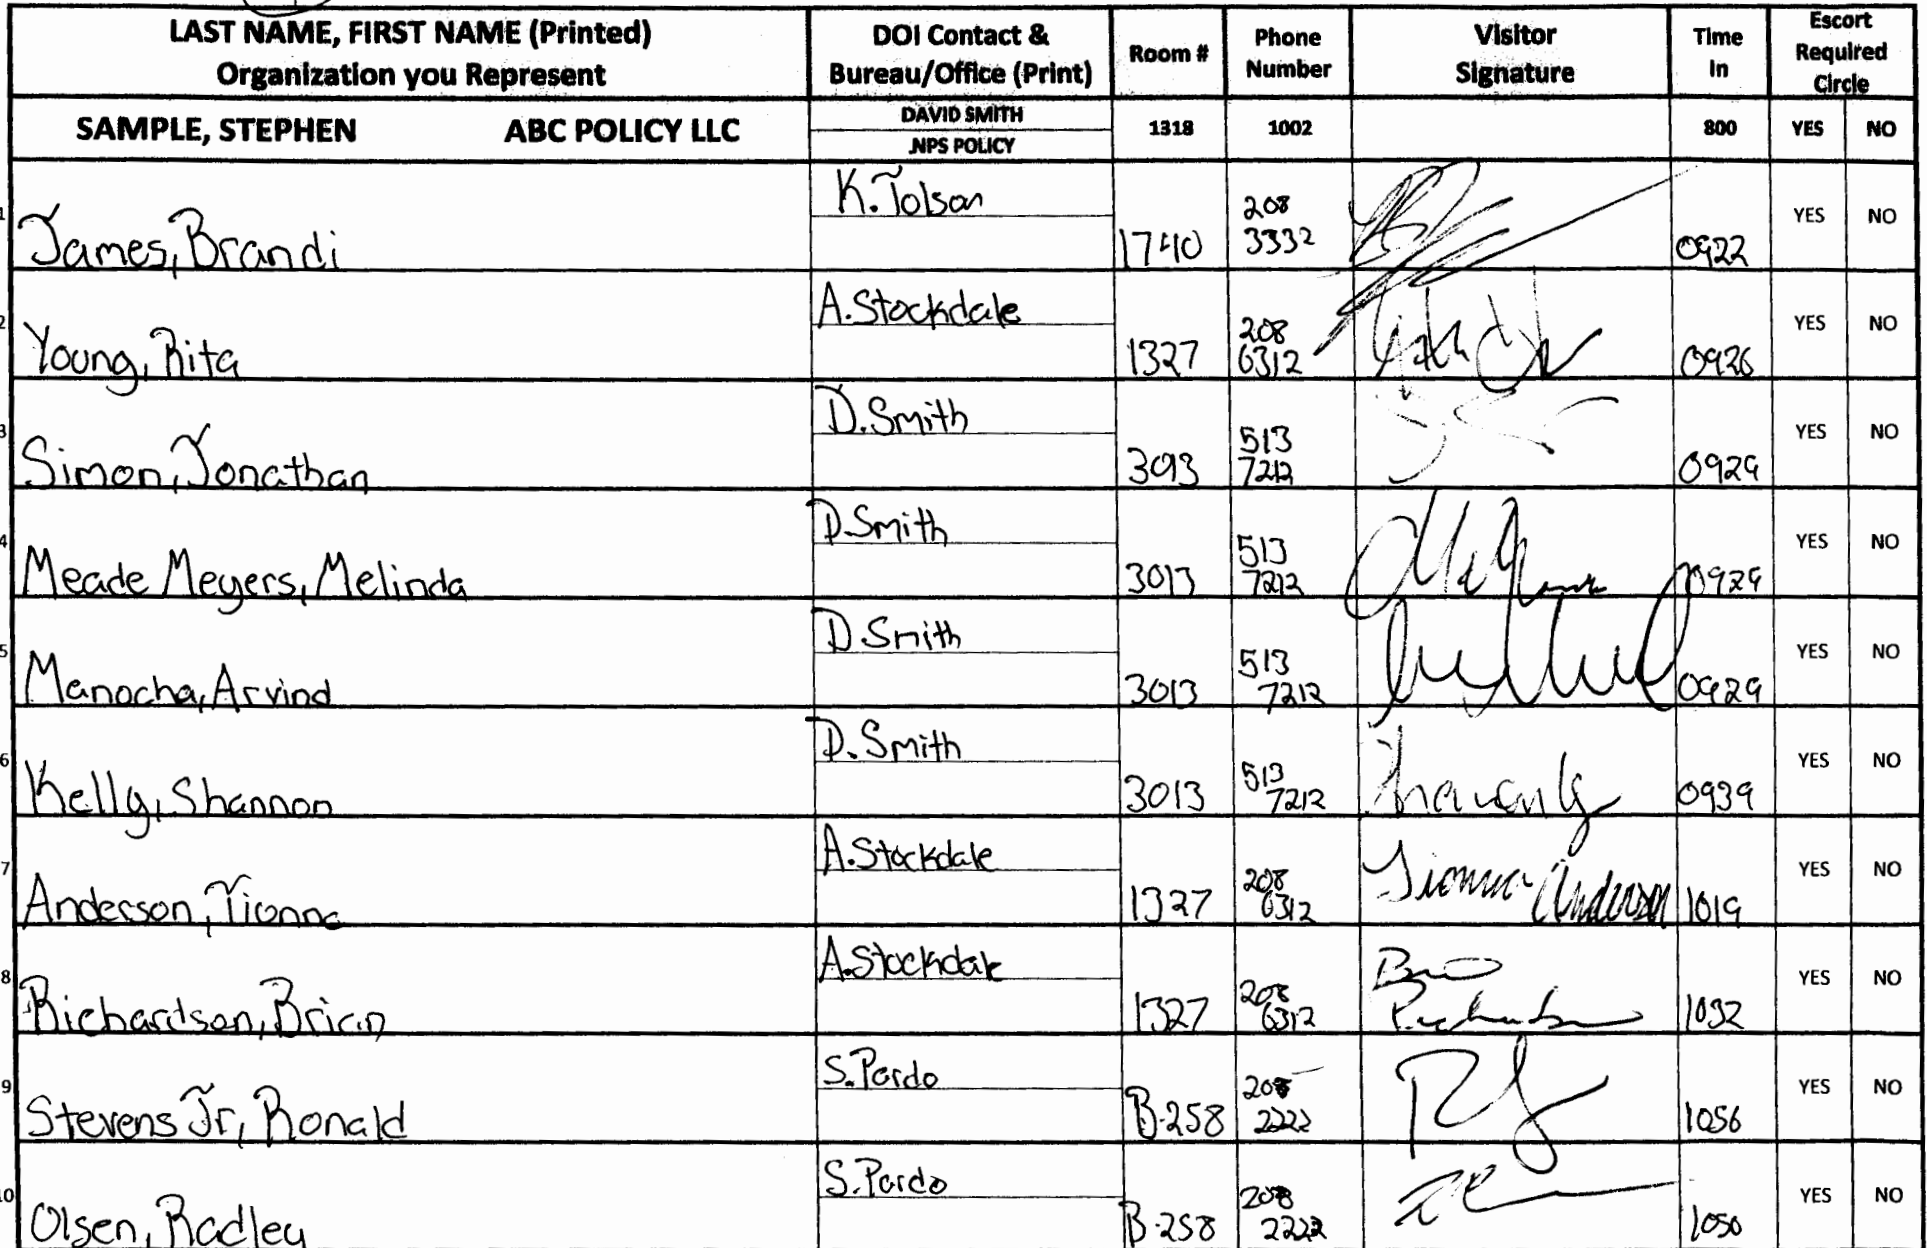 LAST NAME, FIRST NAME (Printed) Organization you Represent DOI Contact & Bureau/Office (Print) Room # Phone Number Visitor Signature Time In Escort Required Circle
SAMPLE, STEPHEN ABC POLICY LLC DAVID SMITH NPS POLICY 1318 1002 800 YES NO
1 James, Brandi K. Tolson 1740 208 3332 0922 YES NO
2 Young, Rita A. Stockdale 1327 208 6312 0926 YES NO
3 Simon, Jonathan D. Smith 3013 513 7212 0929 YES NO
4 Meade Meyers, Melinda D. Smith 3013 513 7212 0929 YES NO
5 Manocha, Arvind D Smith 3013 513 7212 0929 YES NO
6 Kelly, Shannon D. Smith 3013 513 7212 0939 YES NO
7 Anderson, Tionna A. Stockdale 1327 208 6312 Tionna Anderson 1019 YES NO
8 Richardson, Brian A. Stockdale 1327 208 6312 Brian Richardson 1032 YES NO
9 Stevens Jr, Ronald S. Pardo B-258 208 2222 1056 YES NO
10 Olsen, Radley S. Pardo B-258 208 2222 1056 YES NO